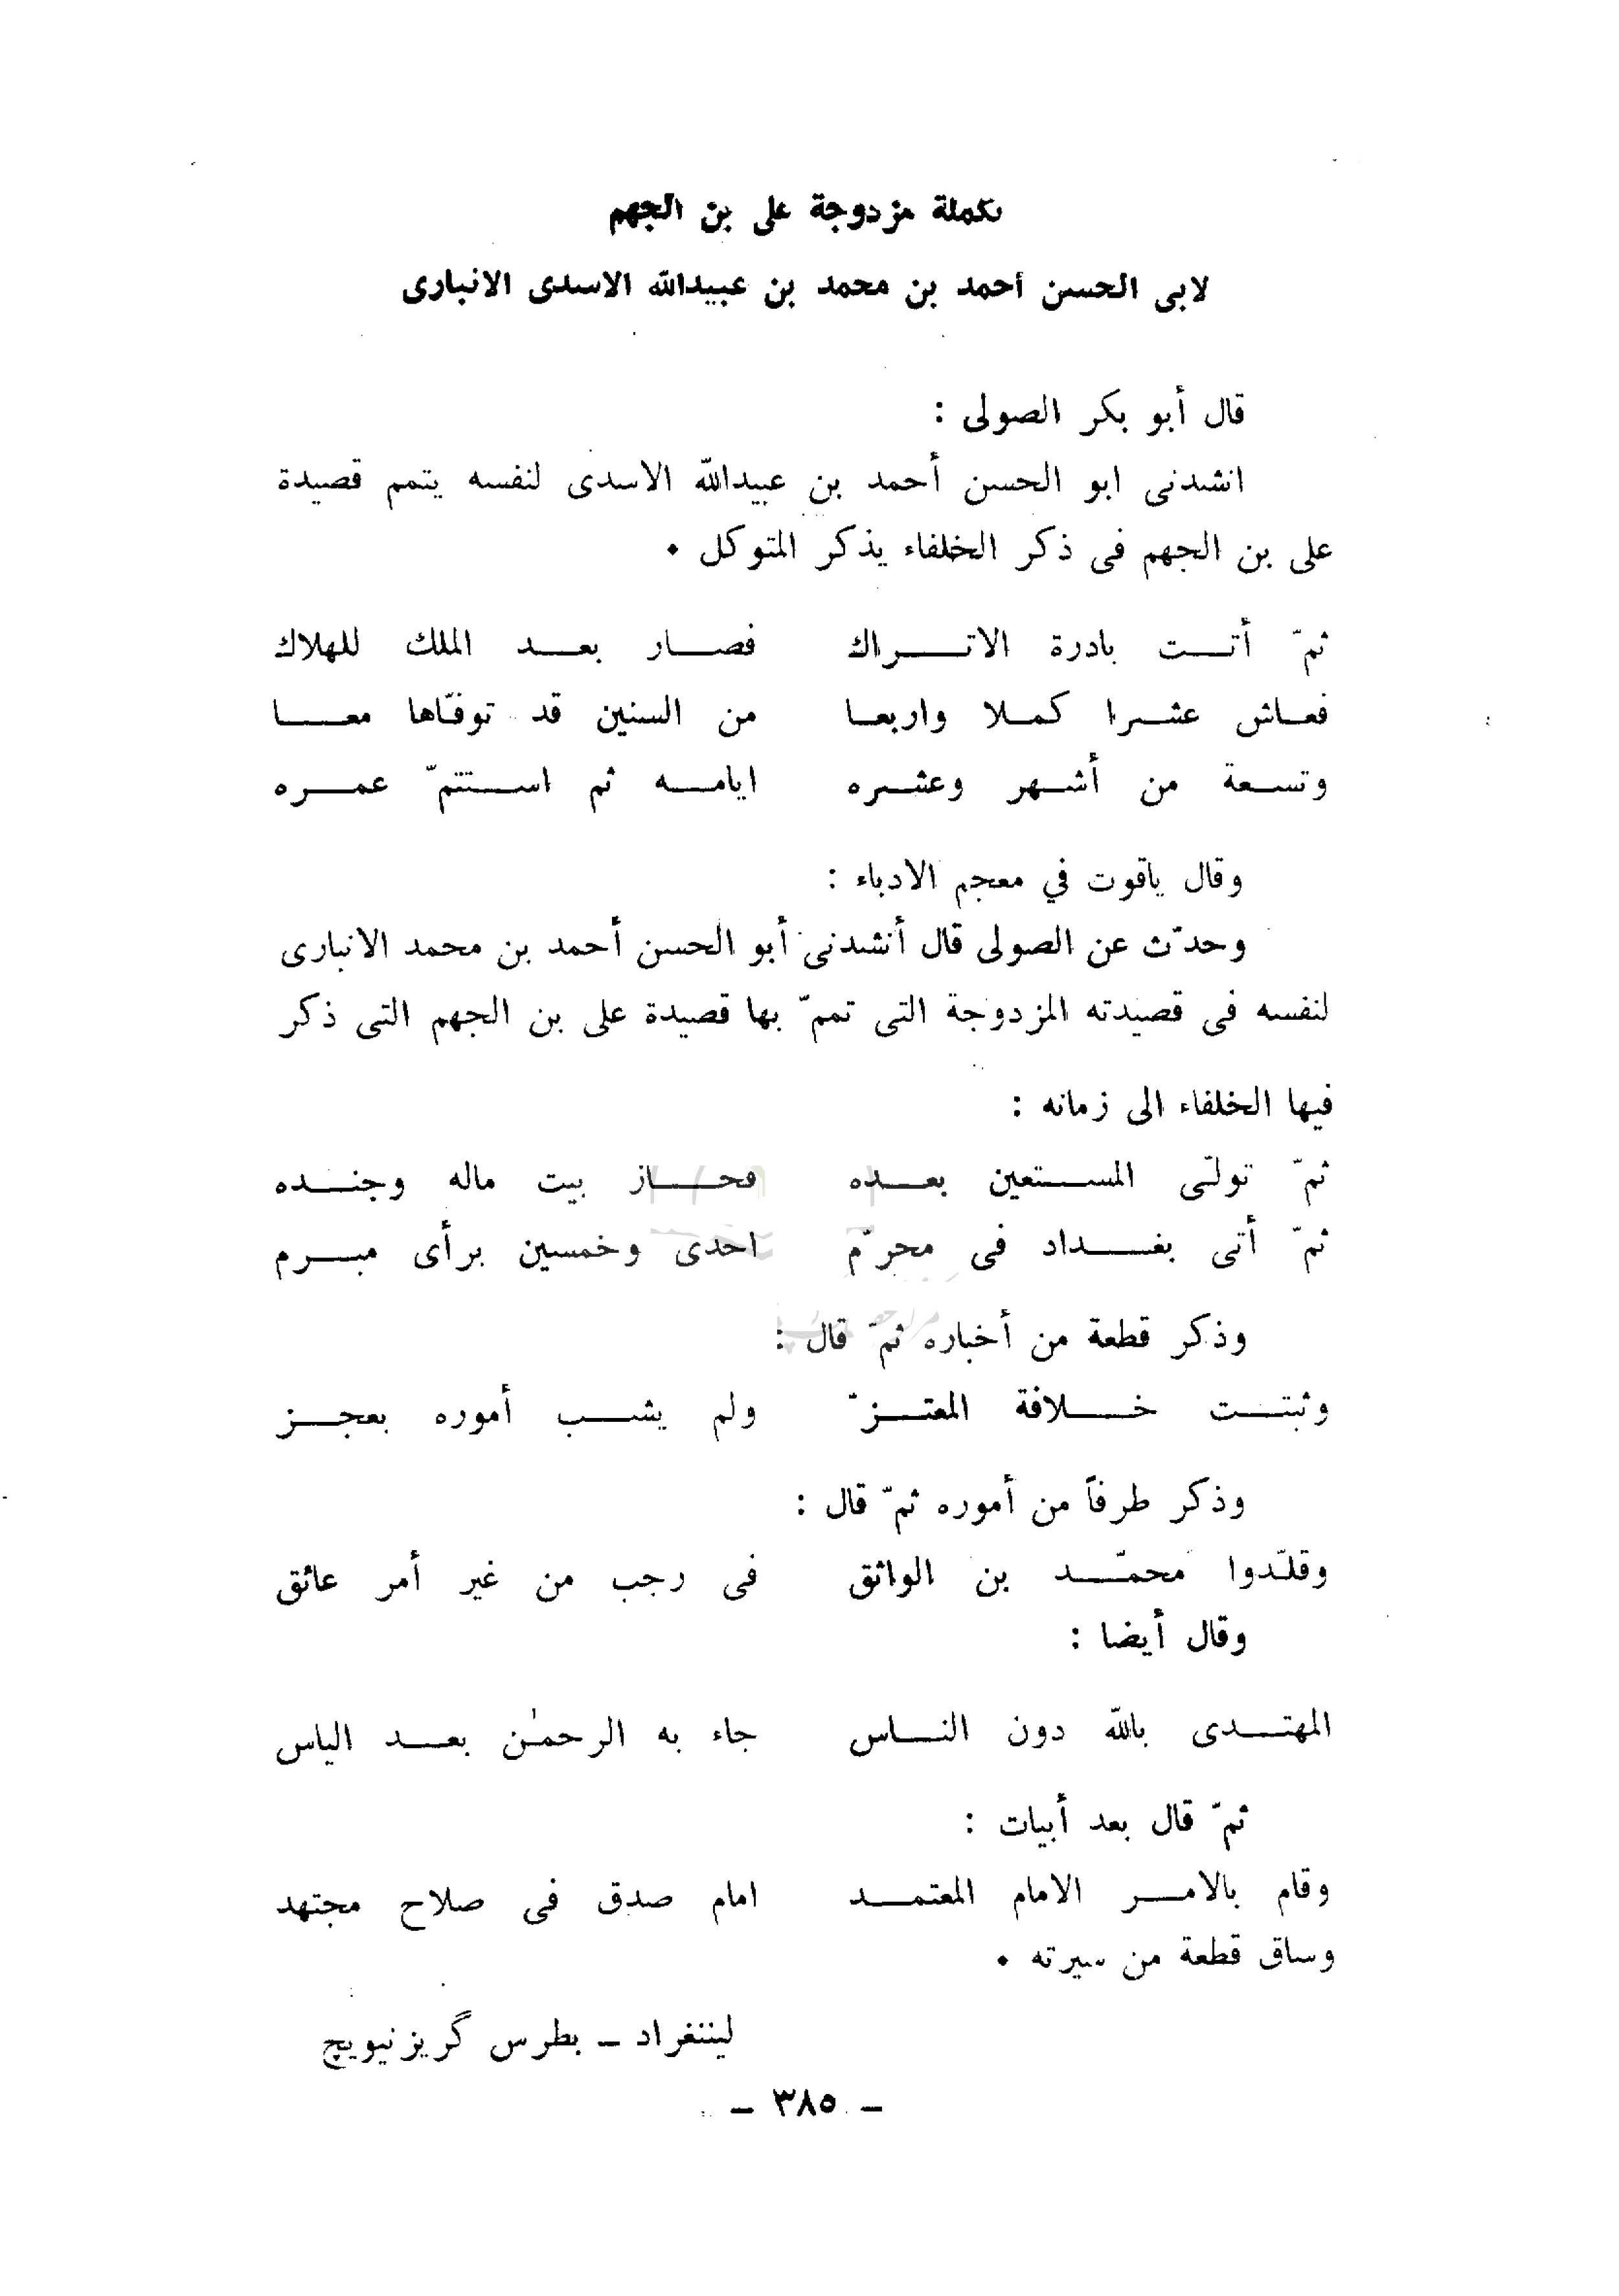 تكملة مزدوجة على بن الجهم
لابى الحسن أحمد بن محمد بن عبيدالله الاسدى الانبارى
قال أبو بكر الصولى :
انشدنى ابو الحسن أحمد بن عبيدالله الاسدى لنفسه يتمم قصيدة
على بن الجهم فى ذكر الخلفاء يذكر المتوكل ٠
ثمّ أتت بادرة الاتراك فصار بعد الملك للهلاك
فعاش عشرا كملا واربعا من السنين قد توفّاها معا
وتسعة من أشهر وعشره ايامه ثم استتمّ عمره
وقال ياقوت في معجم الادباء :
وحدّث عن الصولى قال أنشدنى أبو الحسن أحمد بن محمد الانبارى
لنفسه فى قصيدته المزدوجة التى تممّ بها قصيدة على بن الجهم التى ذكر
فيها الخلفاء الى زمانه :
ثمّ تولّى المستعين بعده فحاز بيت ماله وجنده
ثمّ أتى بغداد فى محرّم احدى وخمسين برأى مبرم
وذكر قطعة من أخباره ثمّ قال :
وثبتت خلافة المعتزّ ولم يشب أموره بعجز
وذكر طرفاً من أموره ثمّ قال :
وقلّدوا محمّد بن الواثق فى رجب من غير أمر عائق
وقال أيضا :
المهتدى بالله دون الناس جاء به الرحمٰن بعد الياس
ثمّ قال بعد أبيات :
وقام بالامر الامام المعتمد امام صدق فى صلاح مجتهد
وساق قطعة من سيرته ٠
ليننغراد ــ بطرس گريزنيويچ
ــ ٣٨٥ ــ